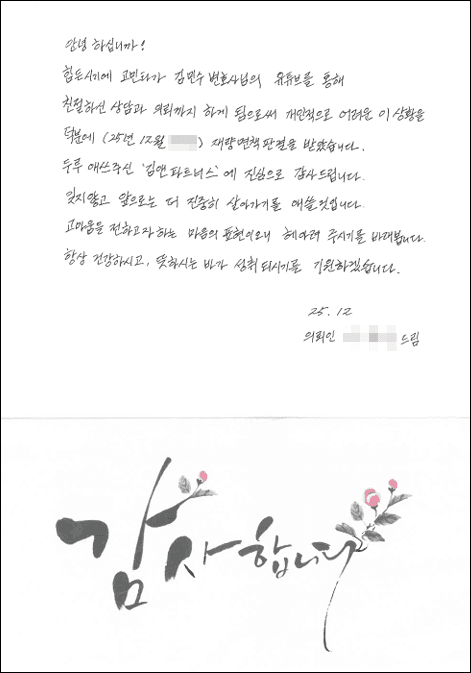 안녕 하십니까!
힘든시기에 고민하다가 김민수 변호사님의 유튜브를 통해
친절하신 상담과 의뢰까지 하게 됨으로써 개인적으로 어려운 이 상황을
덕분에 (25년 12월 ) 재량면책 판결을 받았습니다.
두루 애쓰주신 '김앤파트너스'에 진심으로 감사드립니다.
잊지않고 앞으로는 더 진중히 살아가기를 애쓸것입니다.
고마움을 전하고자 하는 마음의 표현이오니 헤아려 주시기를 바래봅니다.
항상 건강하시고, 뜻하시는 바가 성취 되시기를 기원하겠습니다.
25. 12
의뢰인 드림
감사합니다